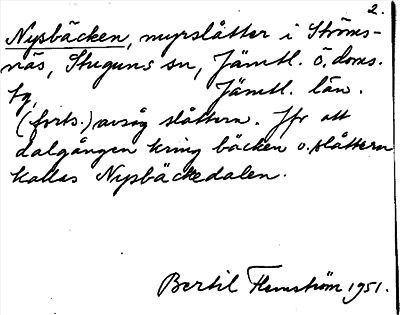 2.
Nysbäcken, myrslåtter i Ströms-
näs, Stuguns sn, Jämtl. ö. doms.
tg, Jämtl. län.
(forts.) avsåg slåttern. Jfr att
dalgången kring bäcken o. slåttern
kallas Nysbäckedalen.
Bertil Flemström 1951.